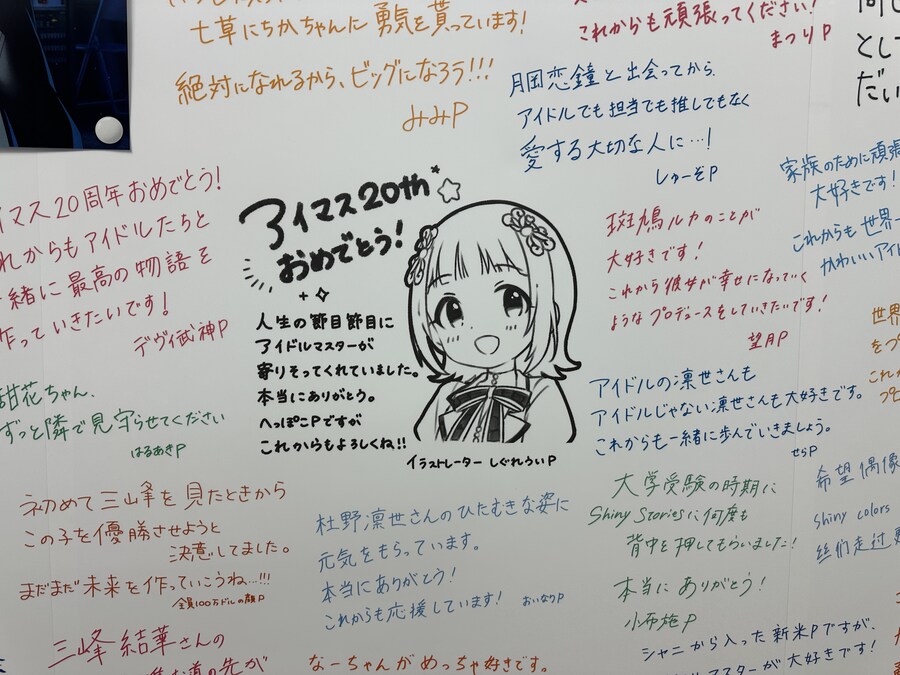 七草にちかちゃんに勇気を貰っています!
絶対になれるから、ビッグになろう!!!
みみP
これからも頑張ってください!
まつりP
月岡恋鐘と出会ってから、
アイドルでも担当でも推しでもなく
愛する大切な人に…!
しゅーぞP
とし
だい
イマス20周年おめでとう!
れからもアイドルたちと
緒に最高の物語を
作っていきたいです!
デヴィ武神P
アイマス20th
おめでとう!
人生の節目節目に
アイドルマスターが
寄りそってくれていました。
本当にありがとう。
へっぽこPですが
これからもよろしくね!!
イラストレーター しぐれういP
斑鳩ルカのことが
大好きです!
これから彼女が幸せになっていく
ようなプロデュースをしていきたいです!
望月P
家族のために頑張
大好きです!
これからも世界一
かわいいアイ
世界
をつ
これか
甜花ちゃん、
ずっと隣で見守らせてください
はるあきP
アイドルの凛世さんも
アイドルじゃない凛世さんも大好きです。
これからも一緒に歩んでいきましょう。
せらP
初めて三峰を見たときから
この子を優勝させようと
決意してました。
まだまだ未来を作っていこうね…!!!
全員100万ドルの顔P
杜野凛世さんのひたむきな姿に
元気をもらっています。
本当にありがとう!
これからも応援しています!
おいなりP
大学受験の時期に
Shiny Storiesに何度も
背中を押してもらいました!
本当にありがとう!
小布施P
希望偶像
shiny colors
丝们走过更
三峰結華さんの
道の先が
なーちゃんがめっちゃ好きです。
シャニから入った新米Pですが、
マスターが大好きです!